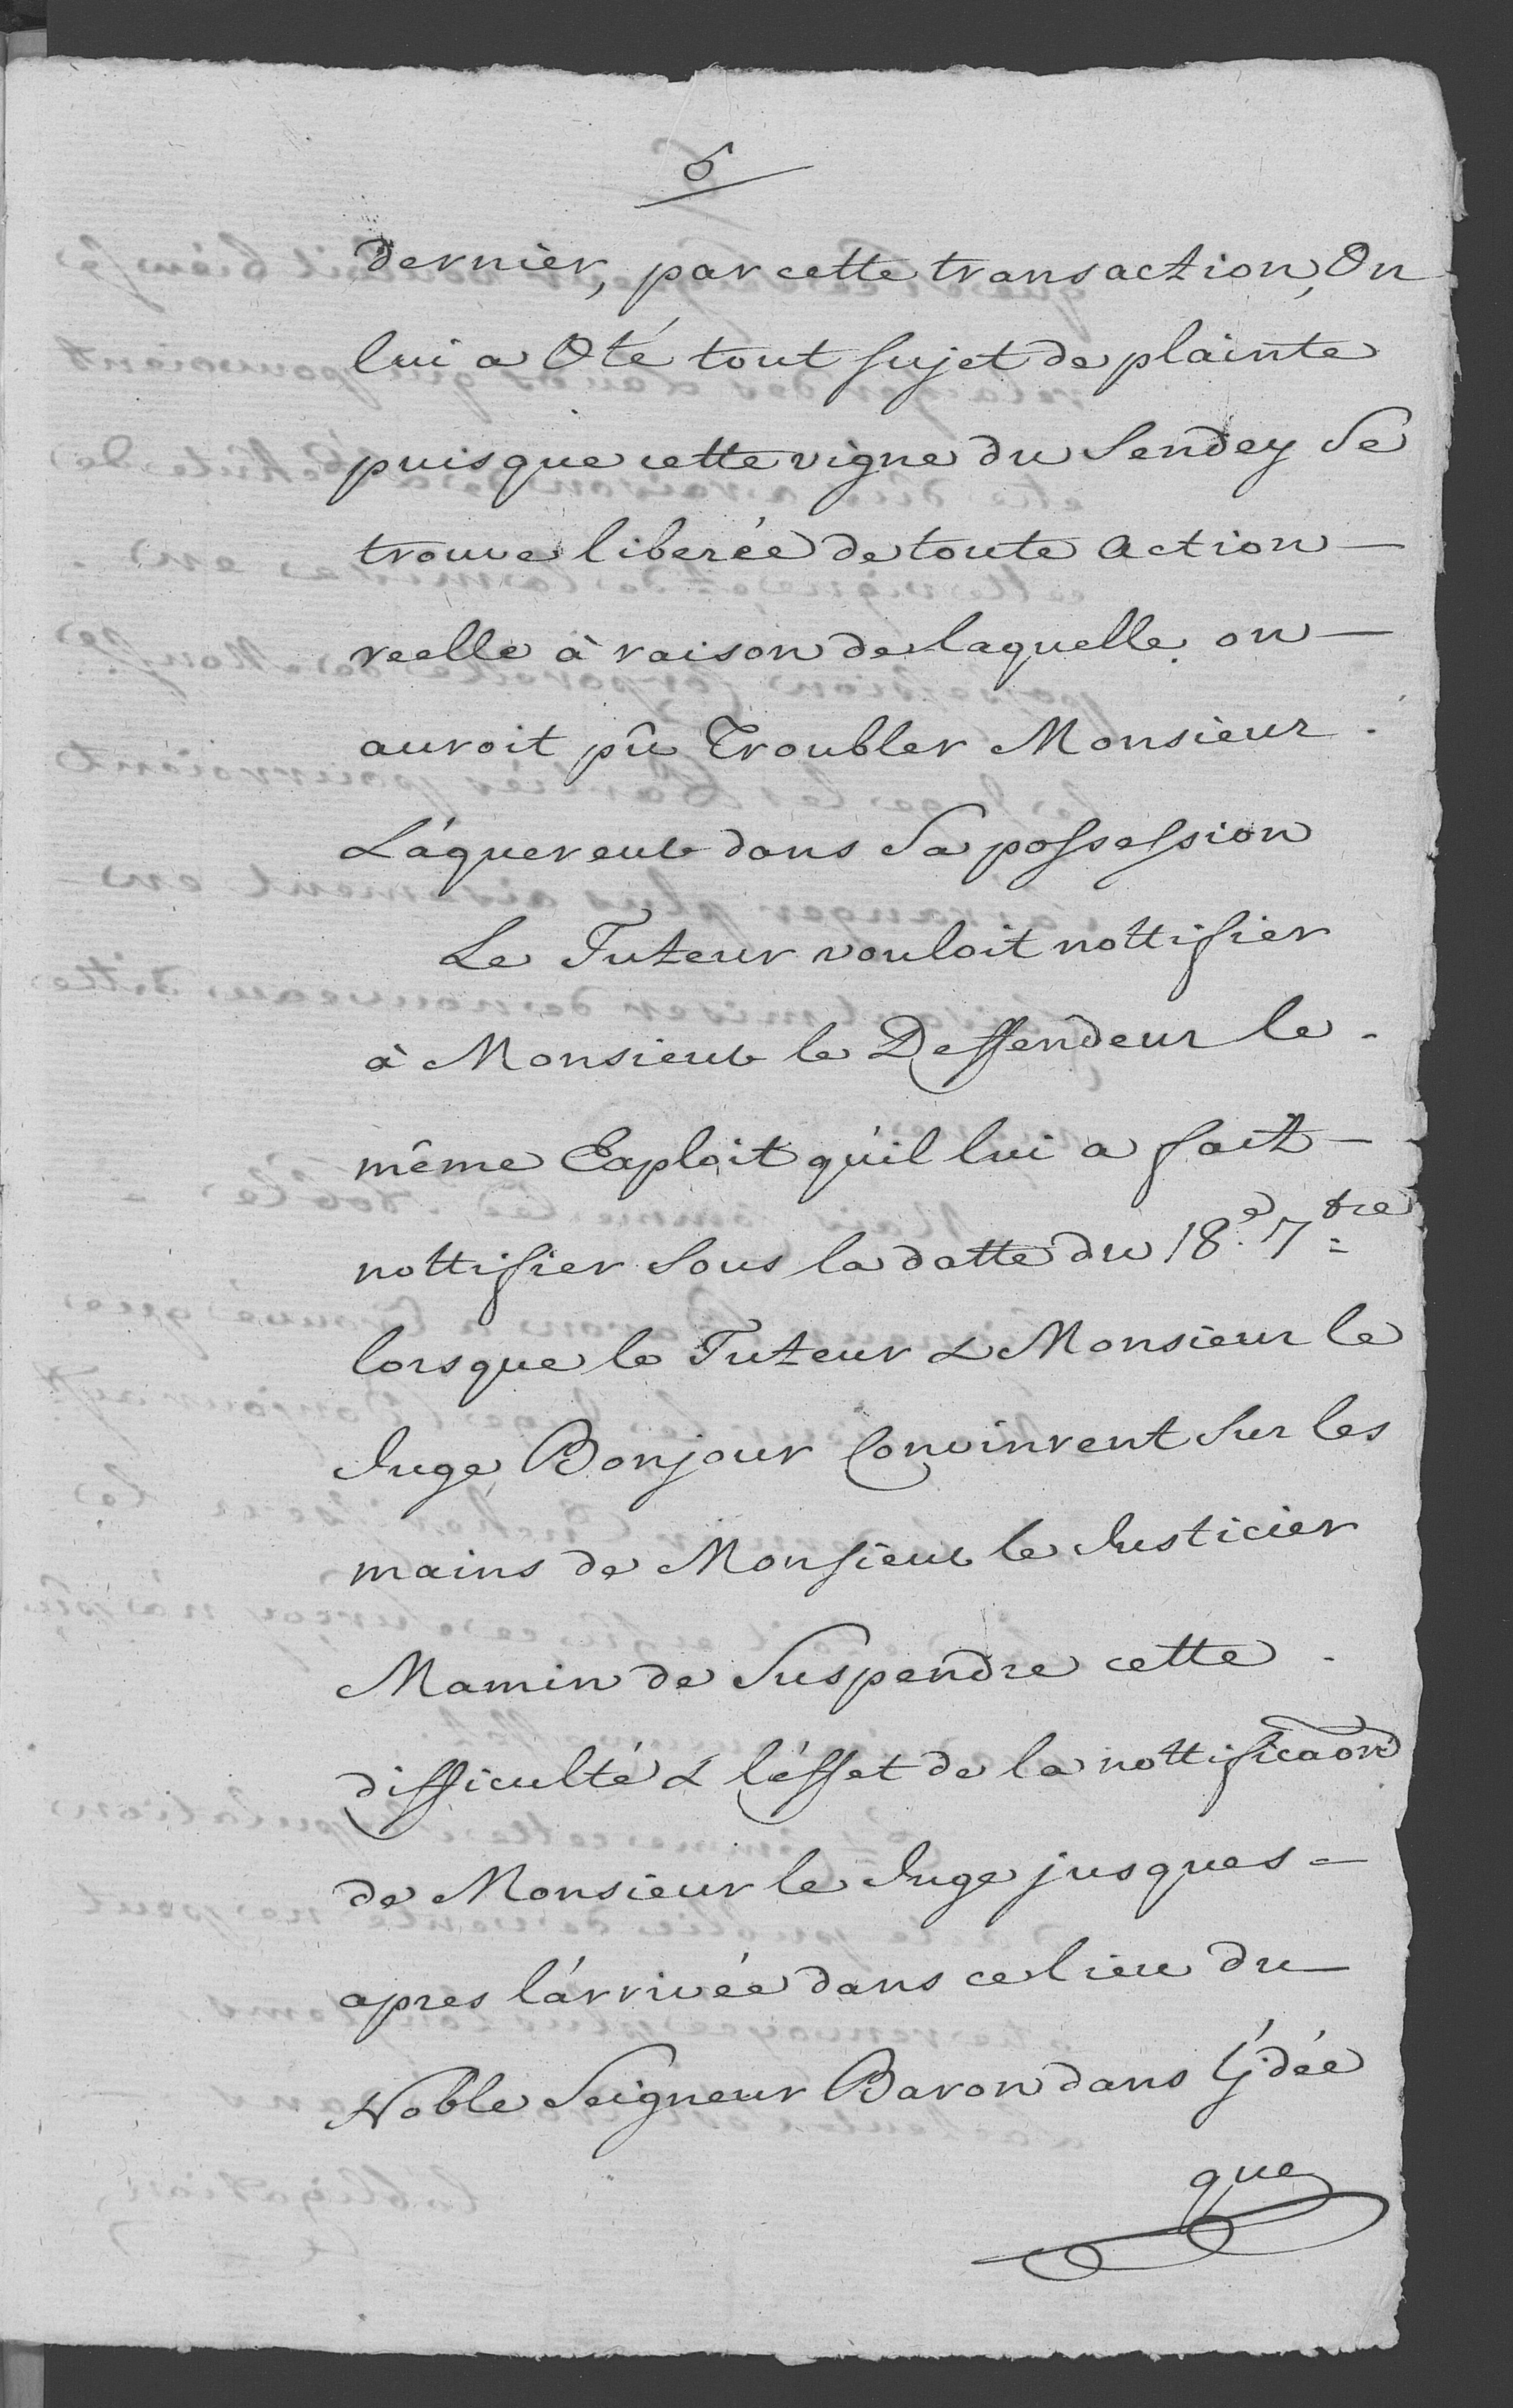 5
dernièr, par cette transaction, On
lui a Oté tout sujet de plainte
puis que cette vigne du Sendey Se
trouve liberée de toute action —
reelle à raison de laquelle on —
auroit pû Troubler Monsieur
L'áquereur dans Sa possession
Le Tuteur vouloit nottifier
à Monsieur le Deffendeur le
même Exploit qu'il lui a fait —
nottifier Sous la datte du 18.e 7bre
lorsque le Tuteur & Monsieur le
Juge Bonjour Convinrent Sur les
mains de Monsieur le Justicier
Mamin de Suspendre cette
difficulté & l'éffet de la nottificaon
de Monsieur le Juge jusques =
apres l'árrivée dans ce lieu du —
Noble Seigneur Baron dans l'ydée
que